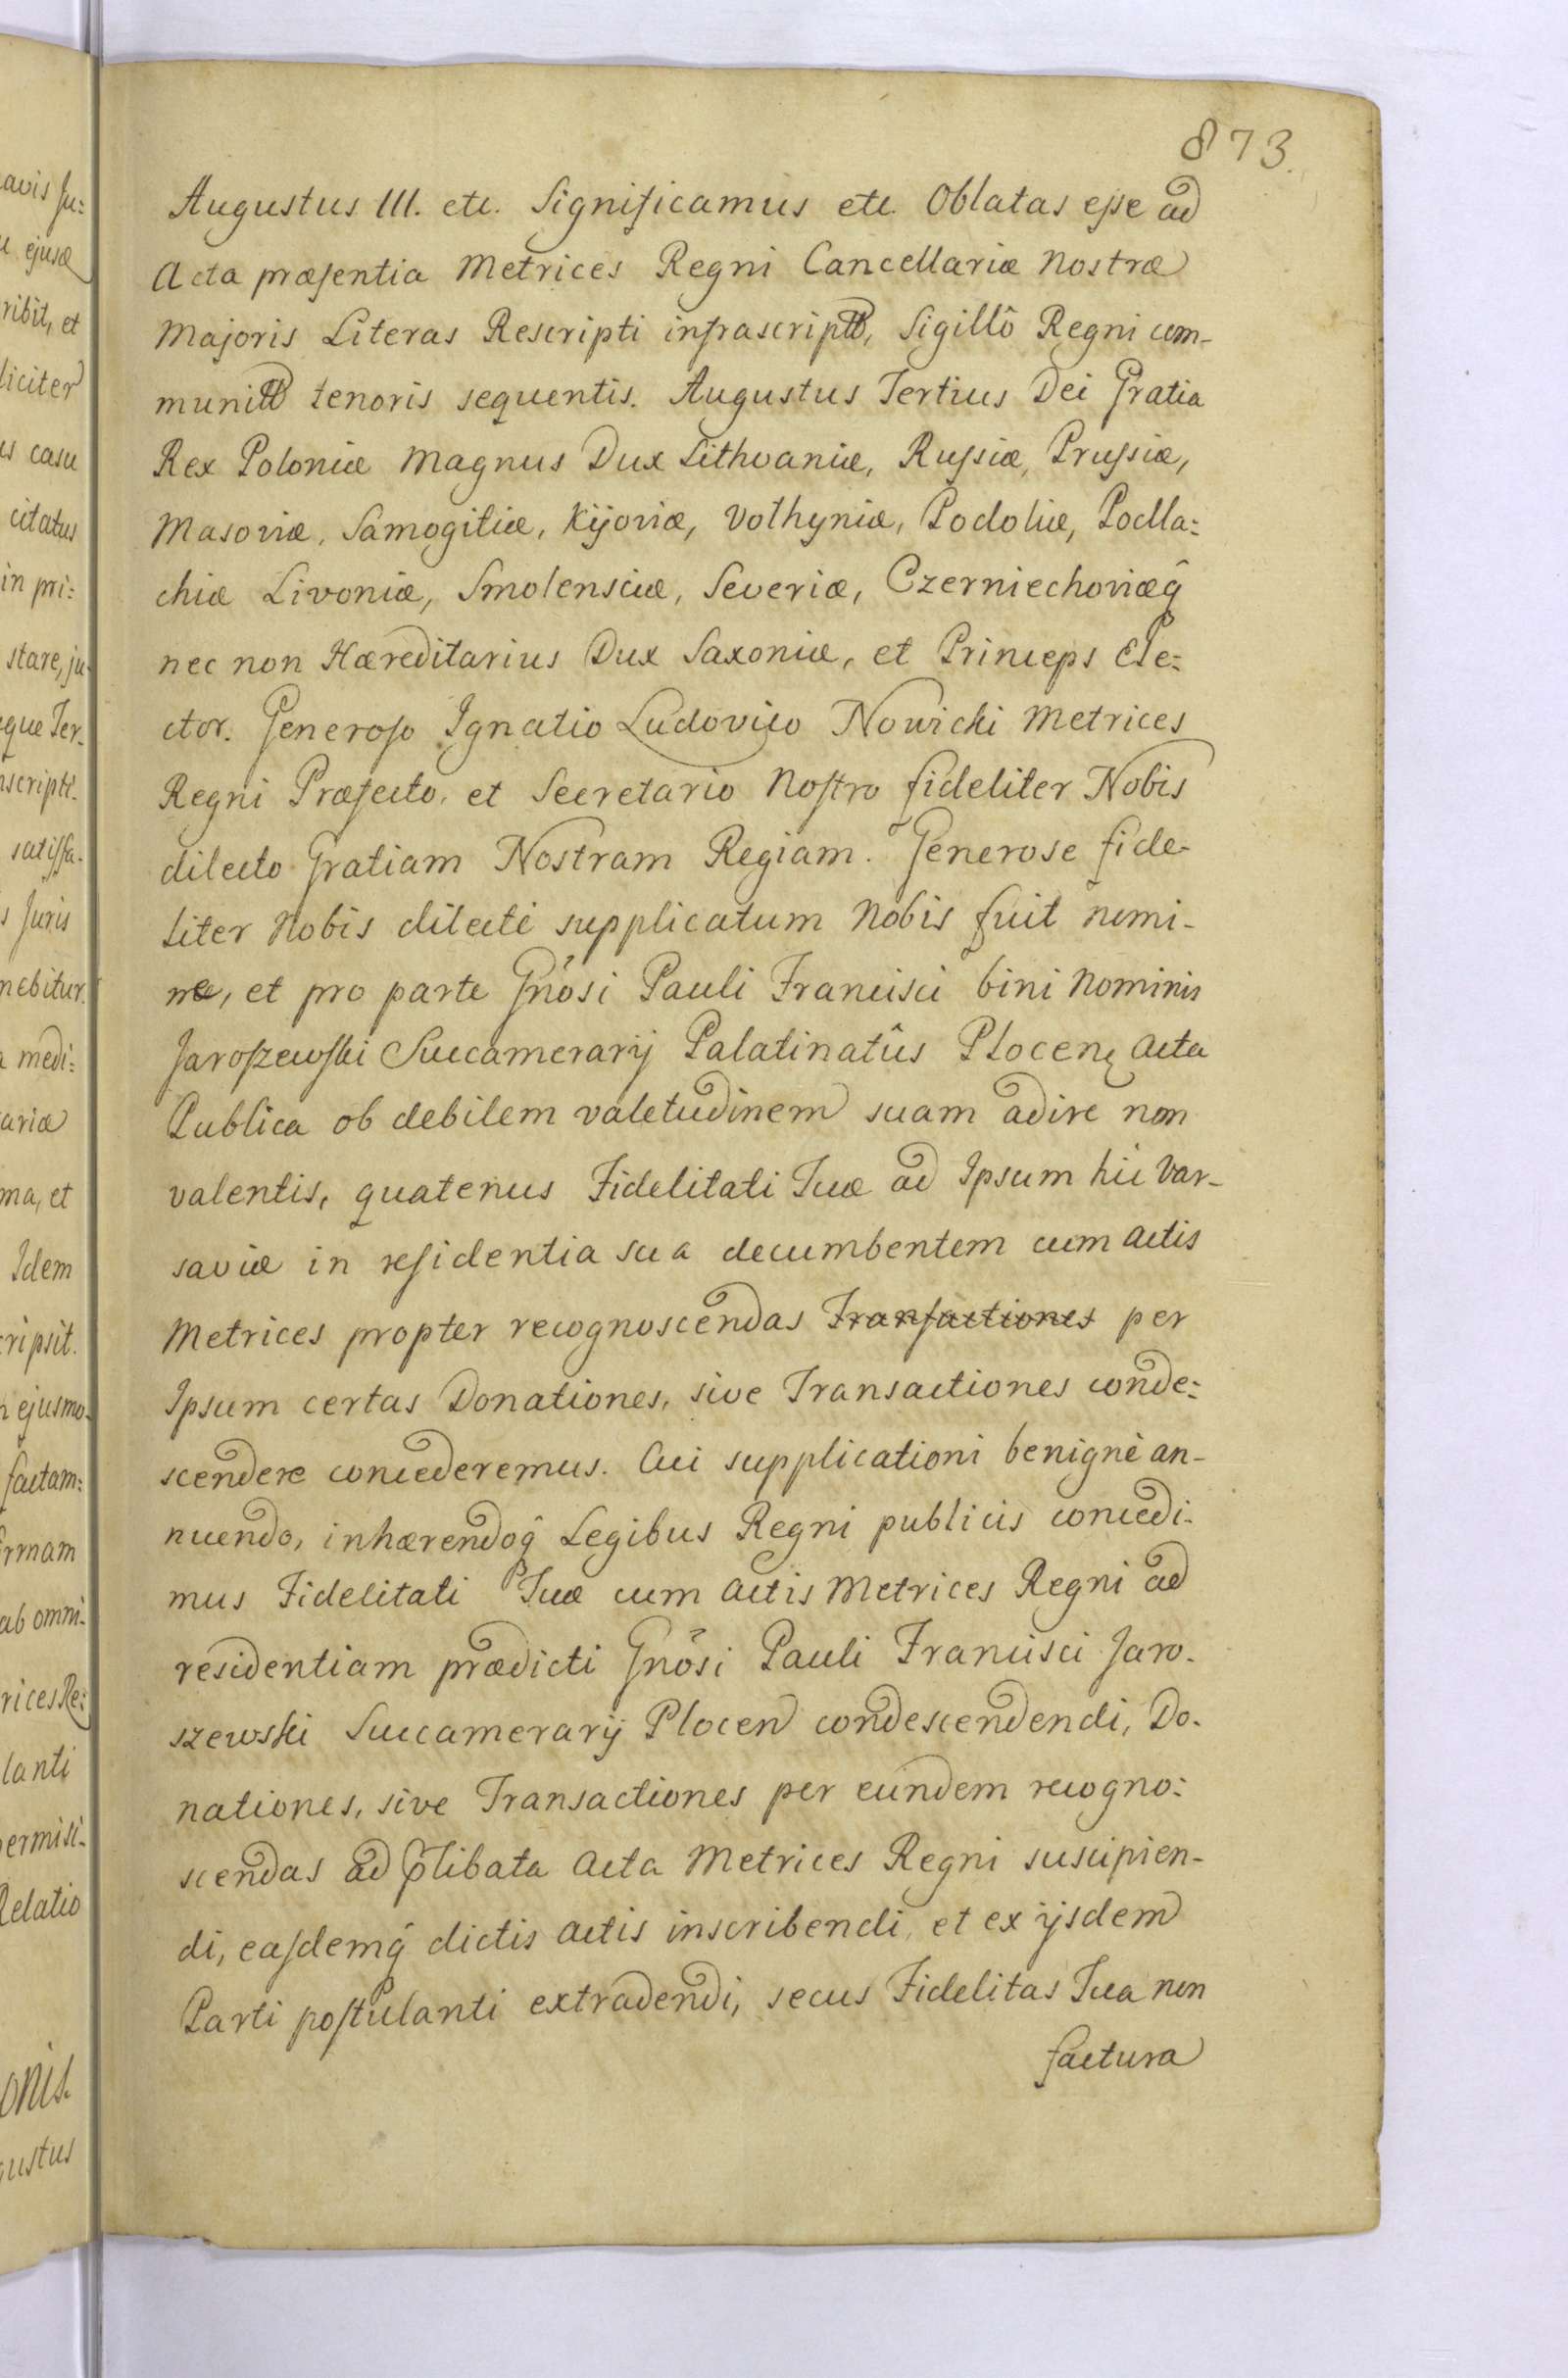 873.
Augustus III. etc. Significamus etc. Oblatas eſse ad
Acta præſentia Metrices Regni Cancellariæ Nostræ
Majoris Literas Rescripti infrascriptt, Sigillô Regni com-
munitt tenoris sequentis. Augustus Tertius Dei Gratia
Rex Poloniæ Magnus Dux Lithvaniæ, Ruſsiæ, Pruſsiæ,
Masoviæ, Samogitiæ, Kijoviæ, Volhyniæ, Podoliæ, Podla:
chiæ Livoniæ, Smolensciæ, Severiæ, Czerniechoviæq̂
nec non Hæreditarius Dux Saxoniæ, et Princeps Ele:
ctor. Generoſo Ignatio Ludovico Nowicki Metrices
Regni Præfecto, et Secretario Noſtro fideliter Nobis
dilecto Gratiam Nostram Regiam. Generose fide-
liter Nobis dilecte supplicatum Nobis fuit nomi-
ne, et pro parte Gnõsi Pauli Francisci bini Nominis
Jaroſzewſki Succamerarij Palatinatûs Plocenę Acta
Publica ob debilem valetudinem suam adire non
valentis, quatenus Fidelitati Tuæ ad Ipsum hic Var-
saviæ in reſidentia sua decumbentem cum Actis
Metrices propter recognoscendas Tranſactiones per
Ipsum certas Donationes, sive Transactiones conde:
scendere concederemus. Cui supplicationi benignè an-
nuendo, inhærendoq̂ Legibus Regni publicis concedi-
mus Fidelitati Tuæ cum Actis Metrices Regni ad
residentiam prædicti Gnõsi Pauli Francisci Jaro-
szewski Succamerarij Plocen condescendendi, Do-
nationes, sive Transactiones per eundem recogno:
scendas ad p̃libata Acta Metrices Regni suscipien-
di, eaſdemq̂ dictis Actis inscribendi, et ex ijsdem
Parti poſtulanti extradendi, secus Fidelitas Tua non
factura